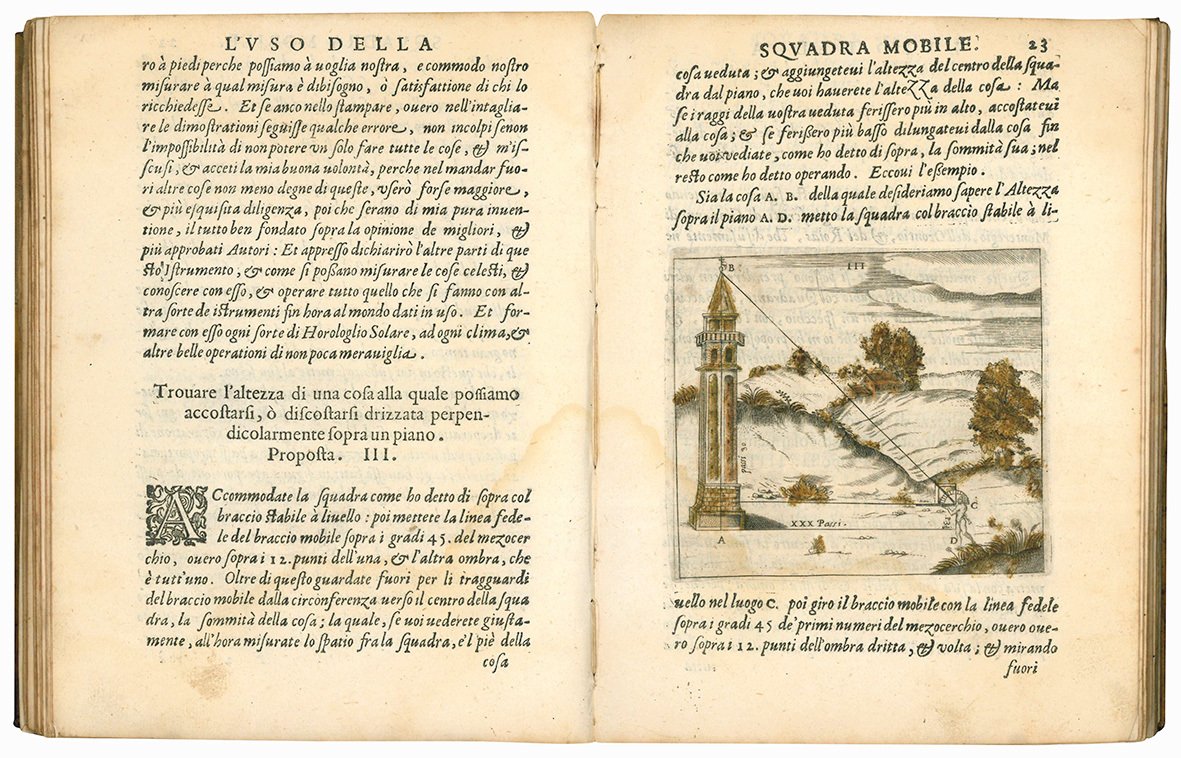 L'VSO DELLA
ro à piedi perche possiamo à voglia nostra, e commodo nostro
misurare à qual misura è dibisogno, ò satisfattione di chi lo
ricchiedesse. Et se anco nello stampare, ouero nell'intaglia-
re le dimostrationi seguisse qualche errore, non incolpi senon
l'impossibilità di non potere vn solo fare tutte le cose, & m'is-
scusi, & acceti la mia buona volontà, perche nel mandar fuo-
ri altre cose non meno degne di queste, vserò forse maggiore,
& più esquisita diligenza, poi che serano di mia pura inuen-
tione, il tutto ben fondato sopra la opinione de migliori, &
più approbati Autori: Et appresso dichiarirò l'altre parti di que
sto Istrumento, & come si possano misurare le cose celesti, &
conoscere con esso, & operare tutto quello che si fanno con al-
tra sorte de istrumenti fin hora al mondo dati in uso. Et for-
mare con esso ogni sorte di Horologlio Solare, ad ogni clima, &
altre belle operationi di non poca merauiglia.
Trouare l'altezza di una cosa alla quale possiamo
accostarsi, ò discostarsi drizzata perpen-
dicolarmente sopra un piano.
Proposta. III.
ACcommodate la squadra come ho detto di sopra col
braccio stabile à liuello: poi mettete la linea fede-
le del braccio mobile sopra i gradi 45. del mezocer
chio, ouero sopra i 12. punti dell'una, & l'altra ombra, che
è tutt'uno. Oltre di questo guardate fuori per li tragguardi
del braccio mobile dalla circonferenza uerso il centro della squa
dra, la sommità della cosa; la quale, se uoi uederete giusta-
mente, all'hora misurate lo spatio fra la squadra, e'l piè della
cosa
SQVADRA MOBILE. 23
cosa ueduta; & aggiungeteui l'altezza del centro della squa-
dra dal piano, che uoi hauerete l'altezza della cosa: Ma
se i raggi della uostra ueduta ferissero più in alto, accostateui
alla cosa; & se ferissero più basso dilungateui dalla cosa fin
che uoi vediate, come ho detto di sopra, la sommità sua; nel
resto come ho detto operando. Eccoui l'essempio.
Sia la cosa A. B. della quale desideriamo sapere l'Altezza
sopra il piano A. D. metto la squadra col braccio stabile à li-
B
III
passi 30
C
XXX Passi.
A
D
uello nel luogo C. poi giro il braccio mobile con la linea fedele
sopra i gradi 45 de' primi numeri del mezocerchio, ouero oue-
ro sopra i 12. punti dell'ombra dritta, & volta; & mirando
fuori